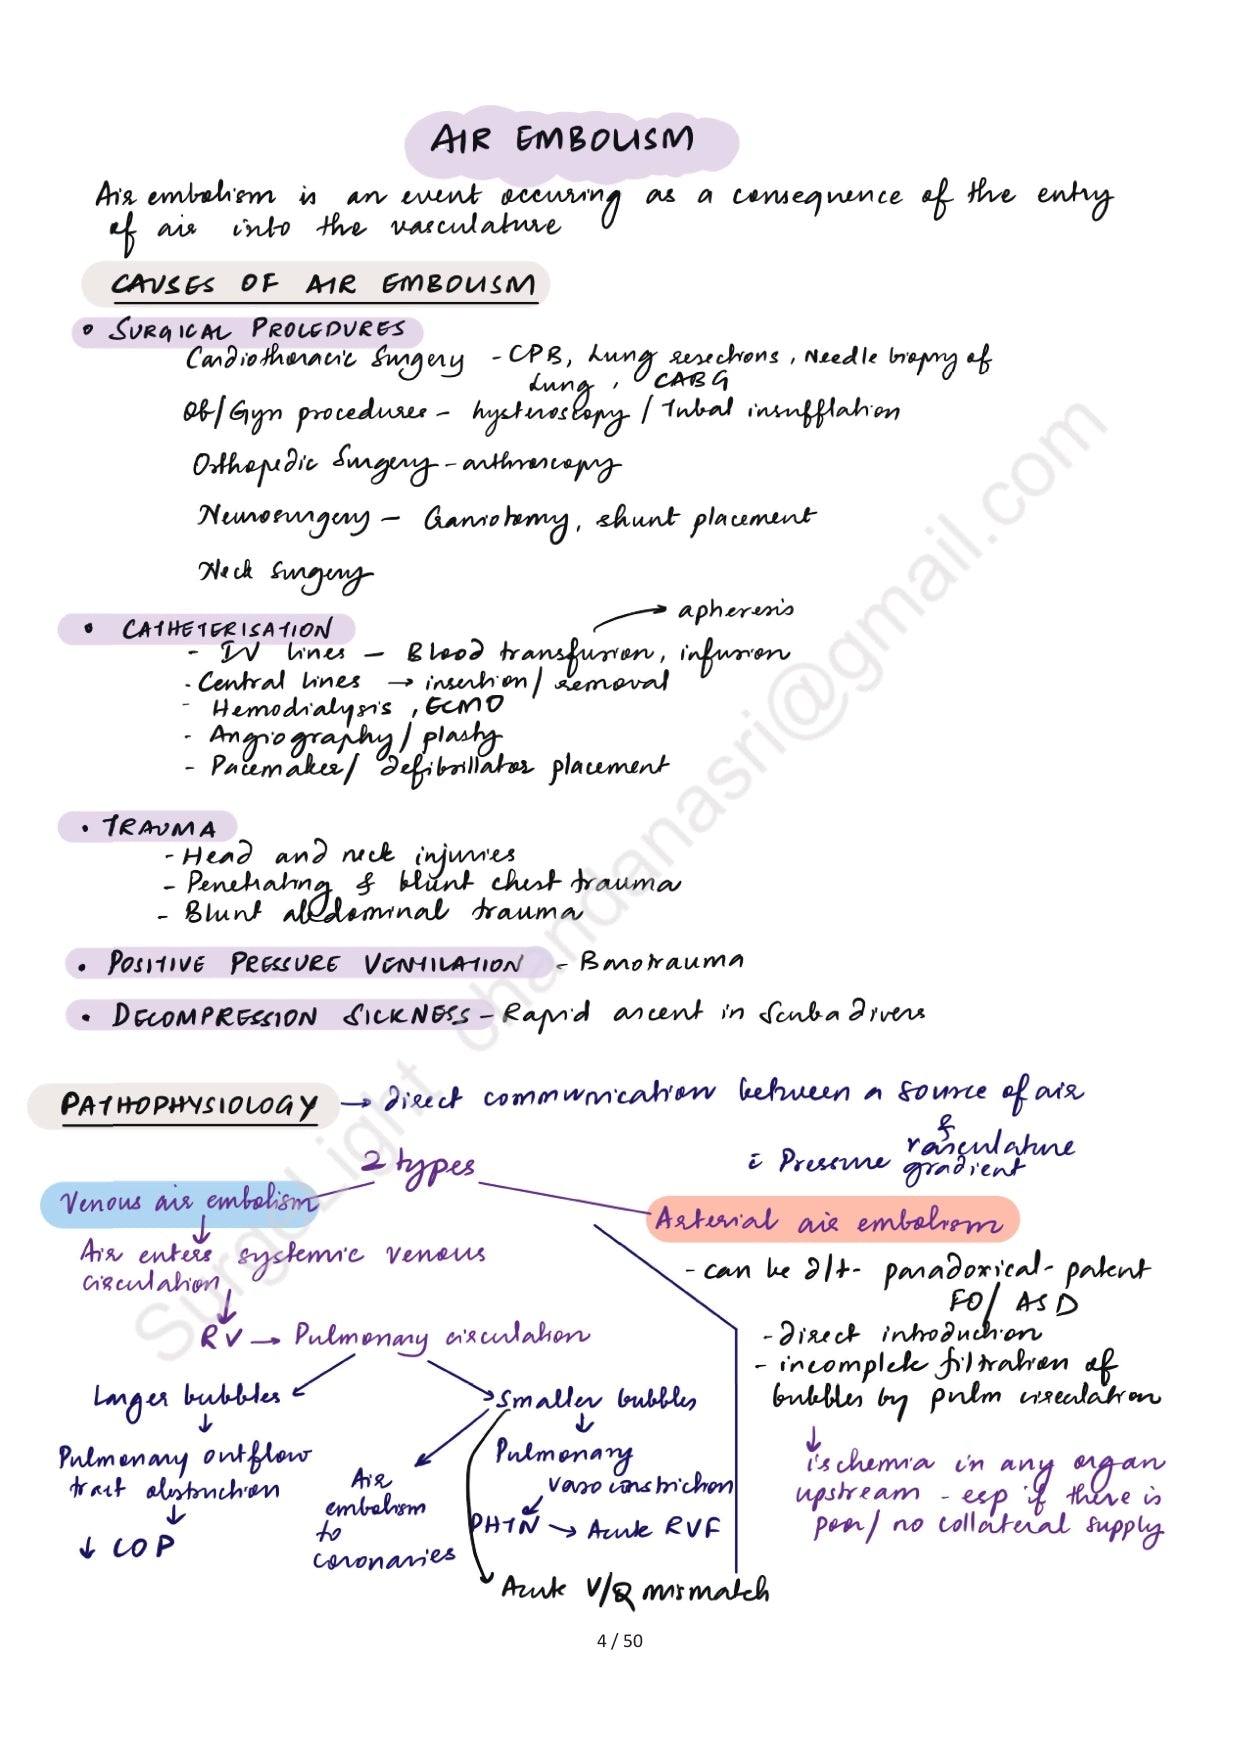 AIR EMBOLISM
Air embolism is an event occuring as a consequence of the entry
of air into the vasculature
CAUSES OF AIR EMBOLISM
• SURGICAL PROCEDURES
Cardiothoracic Surgery - CPB, Lung resections, Needle biopsy of
Lung, CABG
Ob/Gyn procedures - hysteroscopy / Tubal insufflation
Orthopedic Surgery - arthroscopy
Neurosurgery - Craniotomy, shunt placement
Neck Surgery
→ apheresis
• CATHETERISATION
- IV lines - Blood transfusion, infusion
- Central lines → insertion / removal
- Hemodialysis, ECMO
- Angiography / plasty
- Pacemaker / defibrillator placement
• TRAUMA
- Head and neck injuries
- Penetrating & blunt chest trauma
- Blunt abdominal trauma
• POSITIVE PRESSURE VENTILATION - Barotrauma
• DECOMPRESSION SICKNESS - Rapid ascent in Scuba divers
PATHOPHYSIOLOGY → direct communication between a source of air
& vasculature
c̄ Pressure gradient
2 types
Venous air embolism
Arterial air embolism
↓
Air enters systemic venous
circulation
↓
RV → Pulmonary circulation
- can be d/t - paradoxical - patent
FO / ASD
- direct introduction
- incomplete filtration of
bubbles by pulm circulation
↓
ischemia in any organ
upstream - esp if there is
poor / no collateral supply
Larger bubbles
↓
Pulmonary outflow
tract obstruction
↓
↓ COP
Smaller bubbles
Air
embolism
to
coronaries
↓
Pulmonary
vasoconstriction
PHTN → Acute RVF
Acute V/Q mismatch
SurgeLight chandanasri@gmail.com
4 / 50